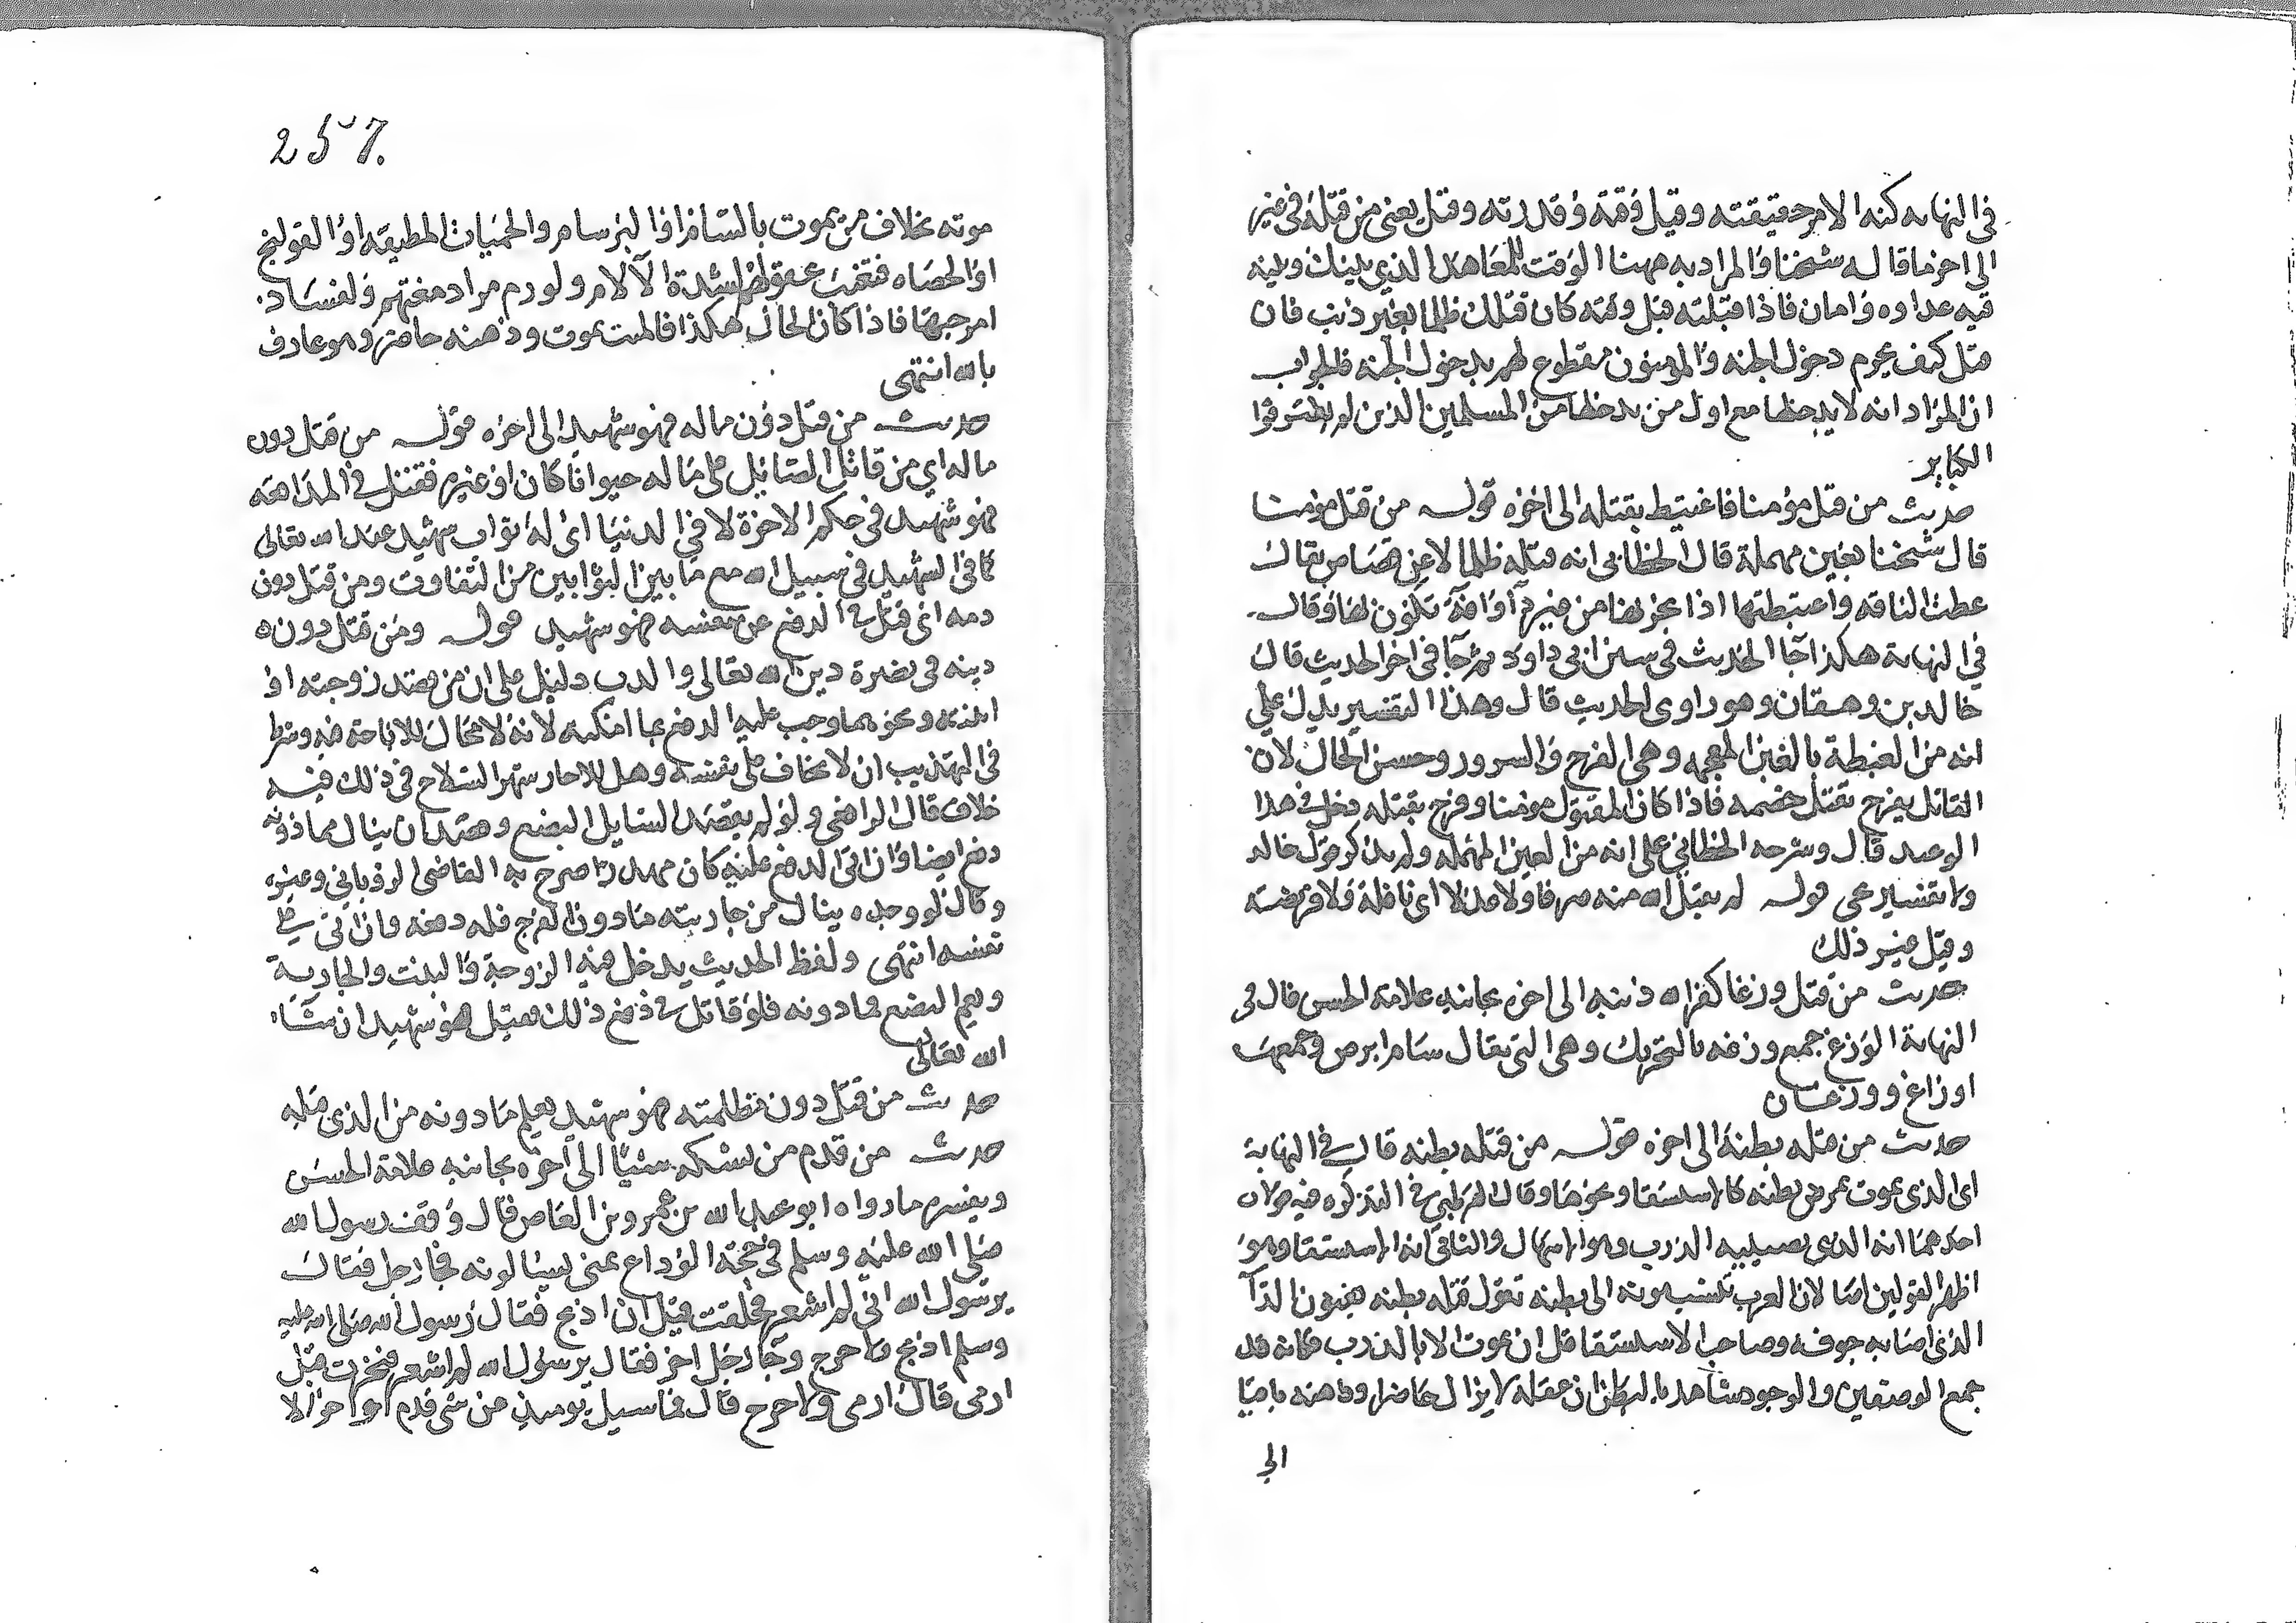 في النهايه كنه الامر حقيقته وقيل وقته وقدرته وقيل يعني من قتله في غير
الى اخر ما قال شيخنا والمراد به ههنا الوقت للمعاهد الذي بينك وبينه
فيه عداوه وامان فاذا قتلته قبل وقته كان قتلك ظلما بغير ذنب فان
قيل كيف يحرم دخول الجنه والمومنون مقطوع لهم بدخول الجنه فالجواب
ان المراد انه لا يدخلها مع اول من يدخلها من المسلمين الذين لم يقترفوا
الكباير
حديث من قتل مؤمنا فاغتبط بقتله الى اخره قوله من قتل مومنا
قال شيخنا بعين مهملة قال الخطابي انه قتله ظلما لا عن قصاص يقال
عبطت الناقه واعتبطتها اذا نحرتها من غير دآ او افة تكون بها وقال
في النهاية هكذا جآ الحديث في سنن ابي داود ثم جآ في اخر الحديث قال
خالد بن دهقان وهو راوي الحديث قال وهذا التفسير يدل على
انه من الغبطة بالغين المعجمه وهي الفرح والسرور وحسن الحال لان
القاتل يفرح بقتل خصمه فاذا كان المقتول مومنا وفرح بقتله دخل في هذا
الوعيد قال وشرحه الخطابي على انه من العين المهمله ولم يذكر قول خالد
ولا تفسير يحيى قوله لم يقبل الله منه صرفا ولا عدلا اي نافلة ولا فريضة
وقيل غير ذلك
حديث من قتل وزغا كفر الله ذنبه الى اخره بجانبه علامة الحسن قال في
النهاية الوزغ جمع وزغه بالتحريك وهي التي يقال سام ابرص وجمعها
اوزاغ ووزغان
حديث من قتله بطنه الى اخره قوله من قتله بطنه قال في النهاية
اي الذي يموت بمرض بطنه كالاستسقا ونحوها وقال القرطبي في التذكره فيه قولان
احدهما انه الذي يصيبه الذرب وهو الاسهال والثاني انه الاستسقا وهو
اظهر القولين لان العرب تنسب موته الى بطنه تقول قتله بطنه يعنون الدآ
الذي اصابه جوفه وصاحب الاستسقا قل ان يموت الا بالذرب فكانه قد
جمع الوصفين والوجود شاهد بالبطن ان عقله لا يزال حاضرا وذهنه باقيا
الى
257.
موته بخلاف من يموت بالسام او البرسام والحميات المطبقه او القولنج
او الحصاه فتغيب عقولهم لشدة الآلام ولورم ادمغتهم ولفساد
امزجتها فاذا كان الحال هكذا فالميت يموت وذهنه حاضر وهو عارف
بالله انتهى
حديث من قتل دون ماله فهو شهيد الى اخره قوله من قتل دون
ماله اي من قاتل الصائل على ماله حيوانا كان او غيره فقتل في المدافعه
فهو شهيد في حكم الاخرة لا في الدنيا اي له ثواب شهيد عند الله تعالى
كما في الشهيد في سبيل الله مع ما بين الثوابين من التفاوت ومن قتل دون
دمه اي قتل في الدفع عن نفسه فهو شهيد قوله ومن قتل دون
دينه في نصرة دين الله تعالى والذب دليل على ان من قصد زوجته او
ابنته ونحوهما وجب عليه الدفع بما امكنه لانه لا مجال للاباحة فيه وشرط
في التهذيب ان لا يخاف على نفسه وهل للاحاد شهر السلاح في ذلك فيه
خلاف قال الرافعي ولو لم يقصد السايل البضع وقصد ان ينال مما دونه
دفع ايضا وان اتى الدفع عليه كان مهدرا صرح به القاضي الروياني وغيره
وقال لو وجده ينال من جاريته ما دون الفرج فله دفعه وان اتى على
نفسه انتهى ولفظ الحديث يدخل فيه الزوجة والبنت والجارية
ويعم البضع فما دونه فلو قاتل في دفع ذلك فقتل فهو شهيد ان شاء
الله تعالى
حديث من قتل دون مظلمته فهو شهيد يعلم مما دونه من الذي قبله
حديث من قدم من نسكه شيئا الى اخره بجانبه علامة الحسن
ويفسره ما رواه ابو عبد الله بن عمرو بن العاص قال وقف رسول الله
صلى الله عليه وسلم في حجة الوداع بمنى يسالونه فجا رجل فقال
يرسول الله اني لم اشعر فحلقت قبل ان اذبح فقال رسول الله صلى الله عليه
وسلم اذبح ولا حرج وجا رجل اخر فقال يرسول الله لم اشعر فنحرت قبل
ارمي قال ارمي ولا حرج قال فما سيل يوميذ عن شي قدم او اخر الا